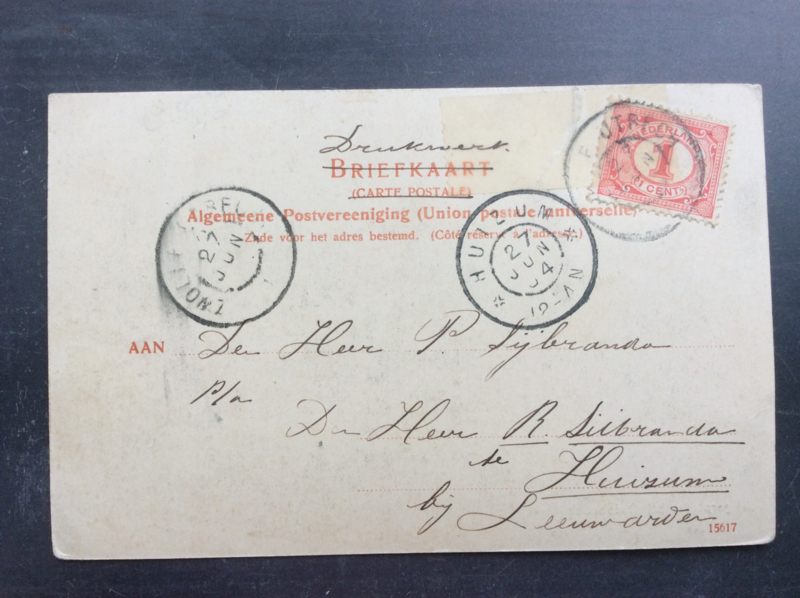 Drukwerk.
BRIEFKAART
(CARTE POSTALE)
Algemeene Postvereeniging (Union postale universelle)
Zijde voor het adres bestemd. (Côté réservé à l'adresse.)
NEDERLAND
1
(1 CENT)
UTR
HUIZUM
27 JUN 04
12-1 VN
ZWOLLE
27 JUN
AAN Den Heer P. Sijbranda
p/a
Den Heer R. Siibranda
te Huizum
bij Leeuwarden
15617